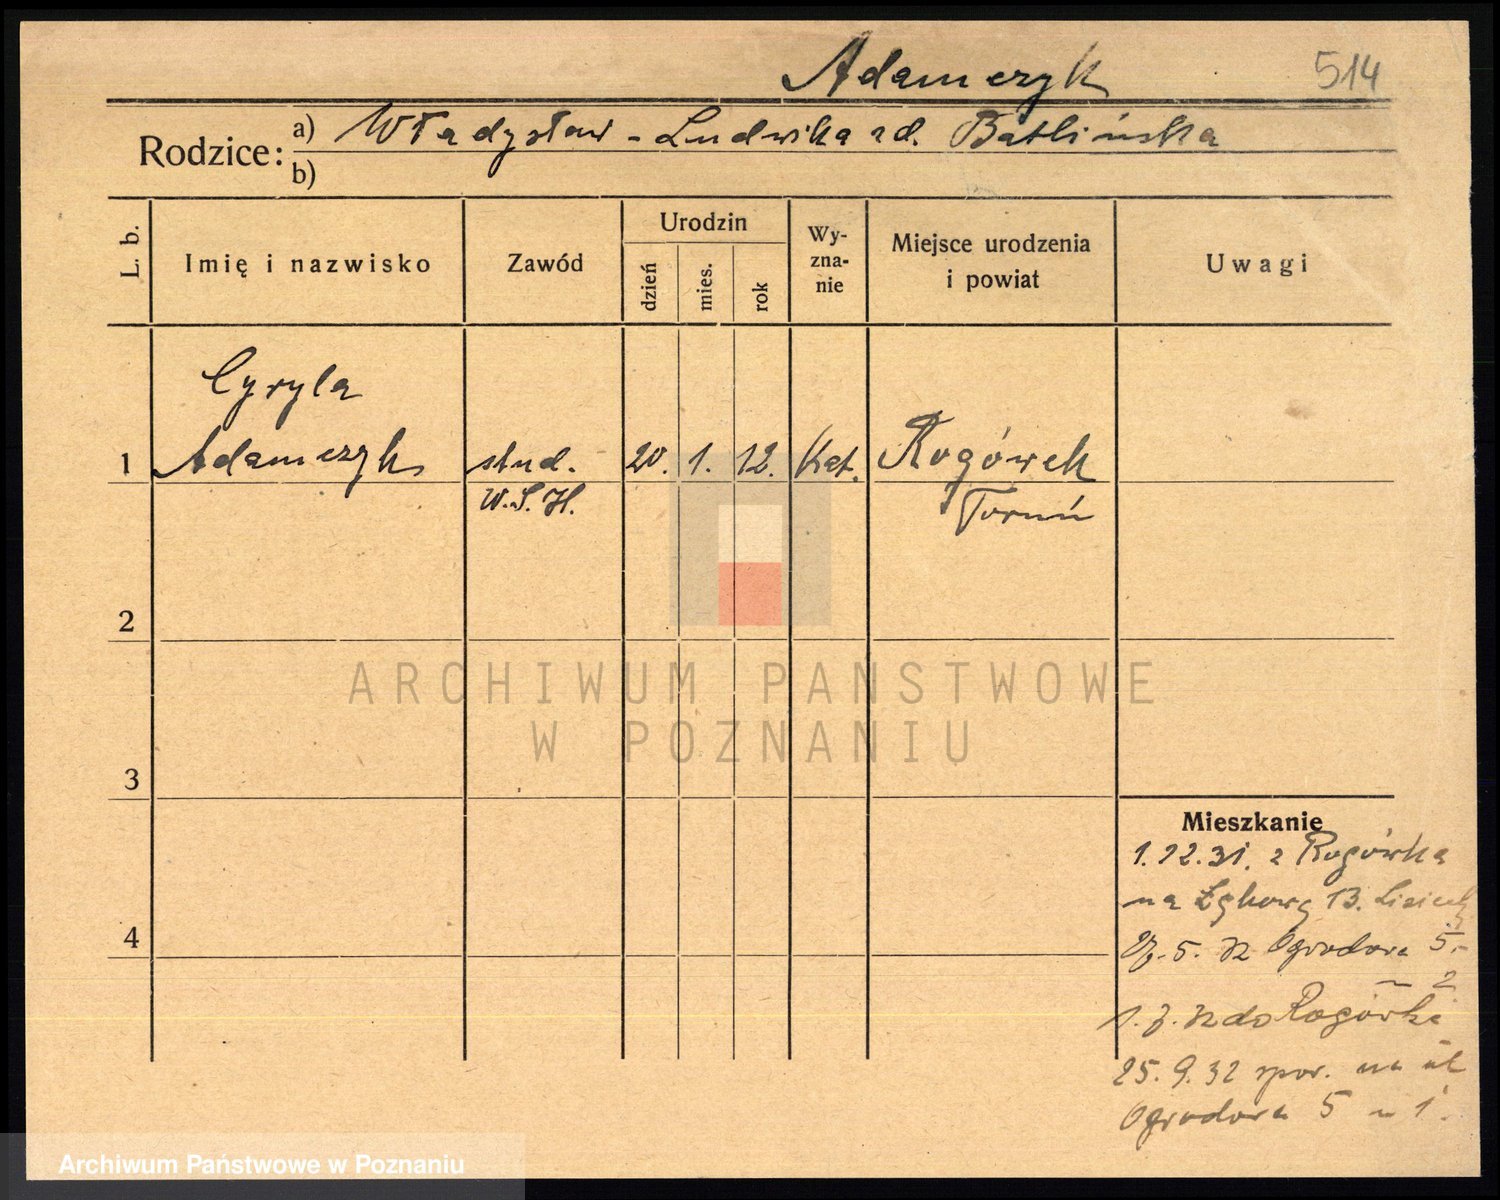 Adamczyk 514
Rodzice:
a) Władysław - Ludwika zd.
b)
L. b.
Imię i nazwisko
Zawód
Urodzin
dzień
mies.
rok
Wy-
zna-
nie
Miejsce urodzenia
i powiat
Uwagi
Cyryla
1 Adamczyk stud. 20. 1. 12. Kat. Rogówek
W.S.H. Toruń
2
ARCHIWUM PAŃSTWOWE
W POZNANIU
3
Mieszkanie
1.12.31. z Rogówka
na Łąkową 13.
5. 32 Ogrodowa 5.
2
1.7.32 do Rogówka
4
25.9.32 spor. na ul
Ogrodowa 5 1.
Archiwum Państwowe w Poznaniu